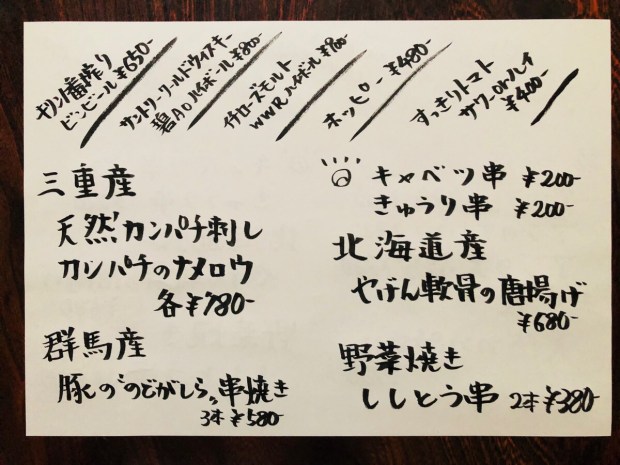 キリン一番搾り
ビンビール ¥650-
サントリーワールドウイスキー
碧Aoハイボール ¥800-
イチローズモルト
WWRハイボール ¥900-
ホッピー ¥480-
すっきりトマト
サワーorハイ
¥400-
三重産
天然カンパチ刺し
カンパチのナメロウ
各¥780-
群馬産
豚の"のどがしら"串焼き
3本 ¥580-
キャベツ串 ¥200-
きゅうり串 ¥200-
北海道産
やげん軟骨の唐揚げ
¥680-
野菜焼き
ししとう串 2本 ¥380-